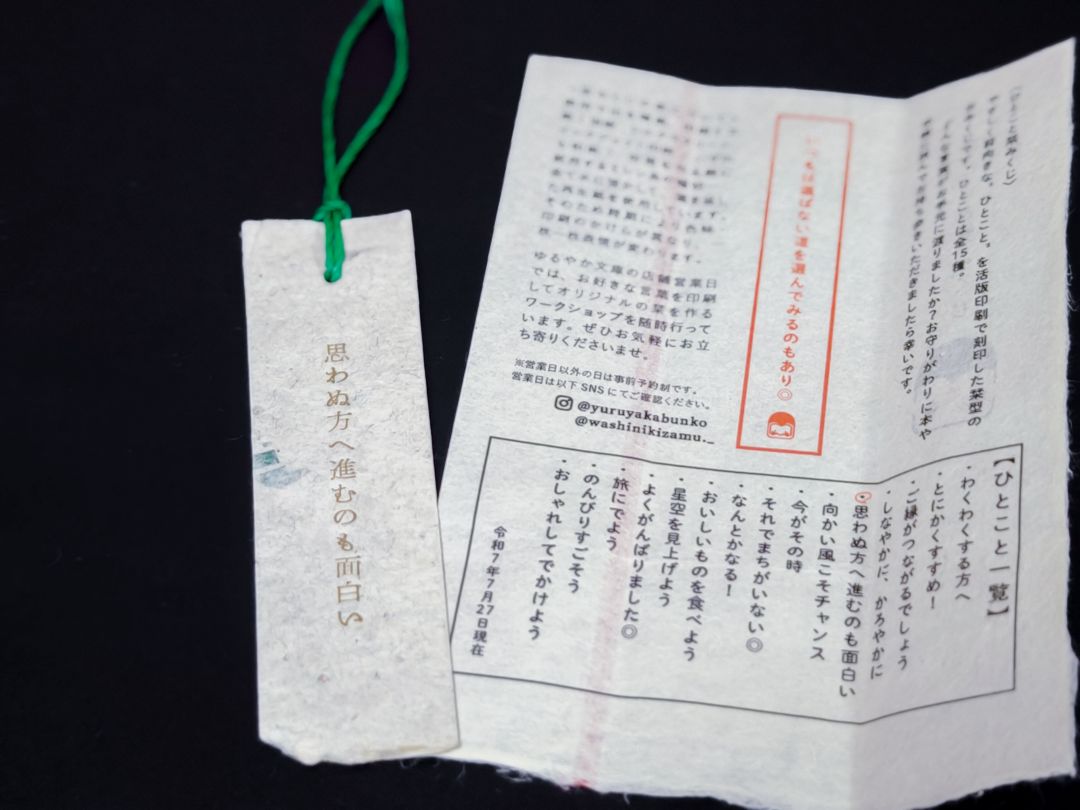 思わぬ方へ進むのも面白い
(ひとこと栞みくじ)
やさしく前向きな。ひとこと。を活版印刷で刻印した栞型の
おみくじです。ひとことは全15種。
どんな言葉がお手元に渡りましたか?お守りがわりに本や
手帳に挟んでお持ち歩きいただきましたら幸いです。
いつもは選ばない道を選んでみるのもあり◎
印刷のかけらが異なり、
枚一枚表情が変わります。
ゆるやか文庫の店舗営業日
では、お好きな言葉を印刷
してオリジナルの栞を作る
ワークショップを随時行って
います。ぜひお気軽にお立
ち寄りくださいませ。
※営業日以外の日は事前予約制です。
営業日は以下SNSにてご確認ください。
@yuruyakabunko
@washinikizamu._
【ひとこと一覧】
・わくわくする方へ
・とにかくすすめ!
・ご縁がつながるでしょう
・しなやかに、かろやかに
・思わぬ方へ進むのも面白い
・向かい風こそチャンス
・今がその時
・それでまちがいない◎
・なんとかなる!
・おいしいものを食べよう
・星空を見上げよう
・よくがんばりました◎
・旅にでよう
・のんびりすごそう
・おしゃれしてでかけよう
令和7年7月27日現在